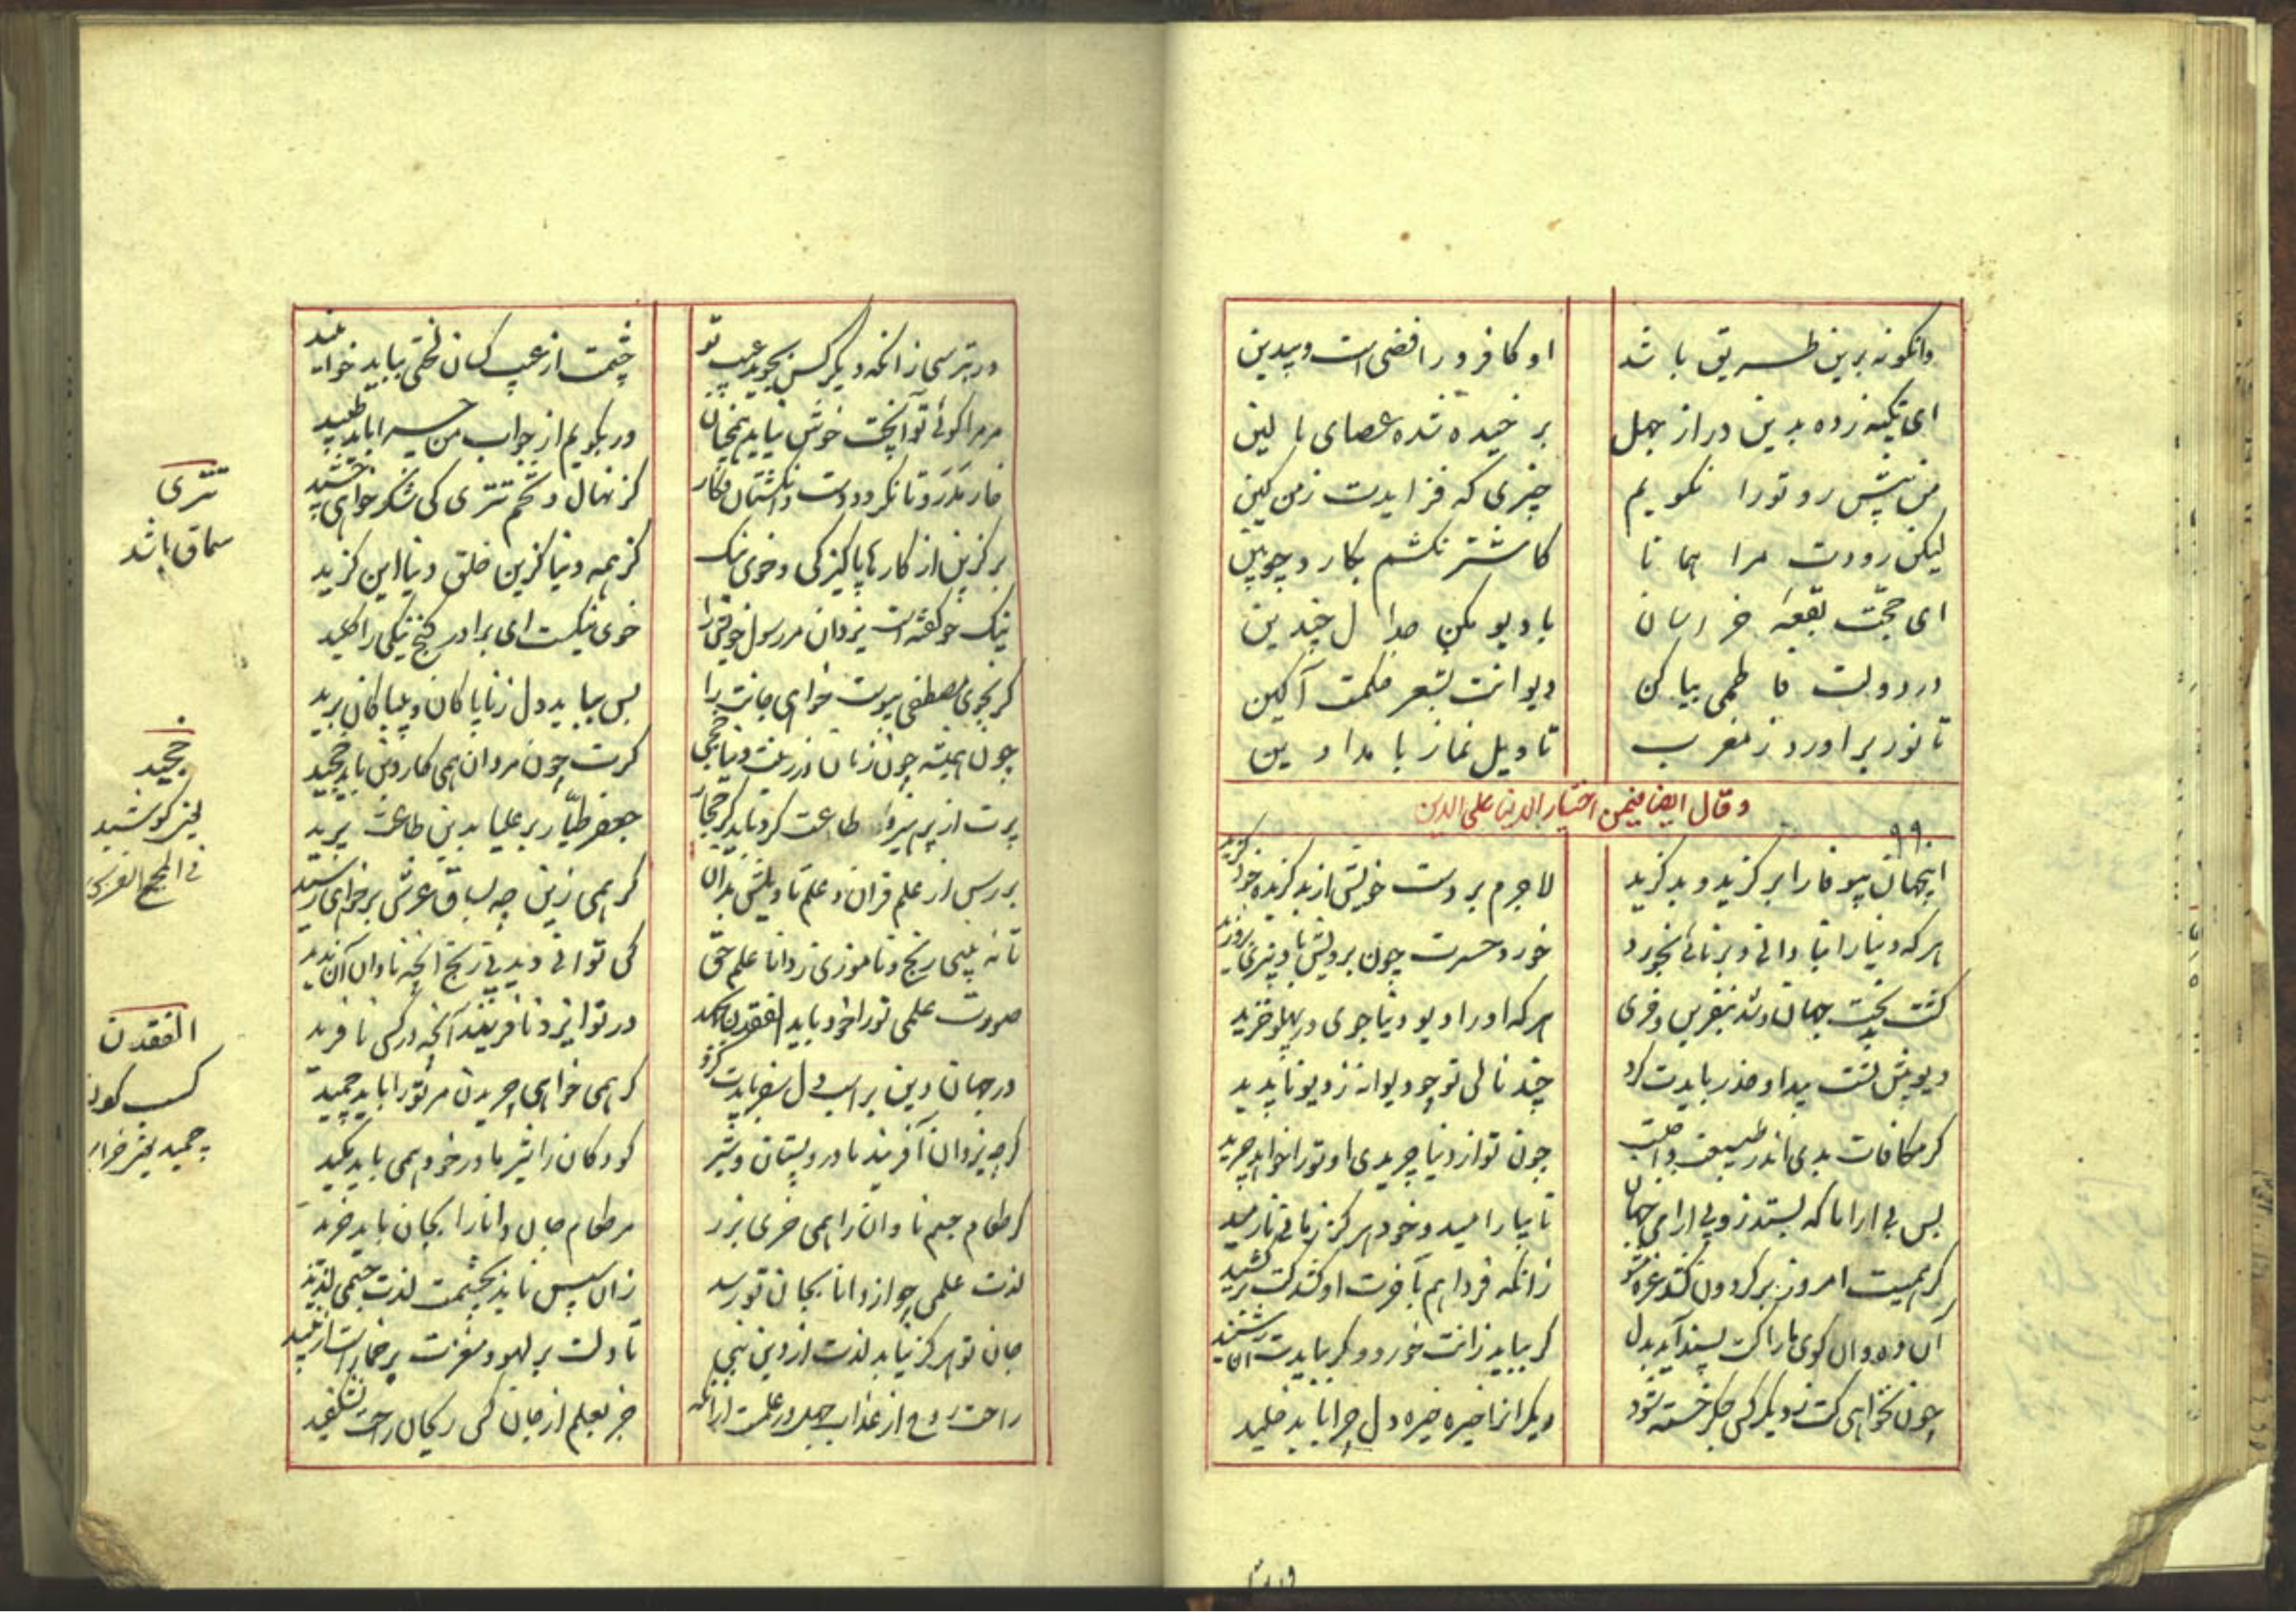 وانکونه برین طریق باشد
او کافر و رافضی است و بیدین
ای تکیه زده بدین در از جهل
بر خیده شده عصای بالین
من پیش رو تو را نکویم
چیزی که فزایدت زمن کین
لیکن رودت مرا همانا
کاشتر نکشم بکارد چوبین
ای حجت بقعه خراسان
با دیو مکن جدال چندین
در دولت فاطمی بیاکن
دیوانت بشعر حکمت آکین
تا نور براورد ز مغرب
تاویل نماز بامدادین
وقال ایضا فیمن اختیار الدنیا علی الدین
۹۹۰
اینجهان بیوفا را بر کزید و بد کزید
لاجرم بر دست خویش از بد کزیده خود کزید
هر که دنیا را بنادانی و برنائی بخورد
خورد حسرت چون برویش باد پیری بروزید
کشت بدبخت جهان و شد بنفرین و خزی
هر که او را دیو دنیا جوی در پهلو خزید
دیو پیش تست پیدا و حذر باید کرد
چند نالی تو چو دیوانه ز دیو ناپدید
کر مکافات بدی اندر طبیعت واجبست
چون تو از دنیا چریدی او تو را خواهد چرید
بس بی اراما که بستد زو بی ارامی جهان
تا بیارامید و خود هرکز زمانی نارمید
کر همیت امروز بر کردون کشد غره مشو
زانکه فردا هم بآخرت او کشد کت بر کشید
آن ده و آن کوی ما را کت پسند آید بدل
کر بباید زانت خورد و کر بیایدت آن شنید
چون نخواهی کت ز دیکر کس جکر خسته شود
دیکرانرا خیره خیره دل چرا باید خلید
ور بترسی زانکه دیکر کس بجوید عیب تو
چشمت از عیب کسان لختی بباید خوابنید
مر مرا کوئی تو آنچت خوش نیاید همچنان
ور بکویم از جواب من چرا باید طپید
خار مدرو تا نکردد دست و انکشتان فکار
کز نهال و تخم تتری کی شکر خواهی چشید
بر کزین از کارها پاکیزکی و خوی نیک
کز همه دنیا کزین خلق دنیا این کزید
نیک خو کفته است یزدان مر رسول خویش را
خوی نیکست ای برادر کنج نیکی را کلید
کر بخوی مصطفی پیوست خواهی جانت را
پس بباید دل ز ناپاکان و بیباکان برید
چون همیشه چون زنان در زینت دنیا چمی
کرت چون مردان همی کار دین باید خجید
پرت از پرهیز و طاعت کرد باید کز حجاز
جعفر طیار بر علیا بدین طاعت پرید
بررس از علم قران و علم تاویلش بدان
کر همی زین چه بساق عرش بر خواهی رسید
تا نه بینی رنج و ناموزی ز دانا علم حق
کی توانی دید بی رنج انچه نادان آن ندید
صورت علمی تو را خود باید الفقدن بجهد
در تو ایزد نافریند آنچه در کس نافرید
در جهان دین بر اسب دل سفر بایدت کرد
کر همی خواهی چریدن مر تو را باید چمید
کرچه یزدان آفریند مادر و پستان و شیر
کودکان را شیر مادر خود همی باید مکید
کر طعام جسم نادان را همی خری بزر
مر طعام جان دانا را بجان باید خرید
لذت علمی چو از دانا بجان تو رسد
زان سپس ناید بچشمت لذت جسمی لذیذ
جان تو هرکز نیابد لذت از دین نبی
تا دلت پر لهو و مغزت پر خمار است از نبید
راحت روح از عذاب جهل در علمست ازانکه
جز بعلم از جان کس ریحان راحت نشکفید
تتری
سماق باشد
خجید
یعنی کوشید
فی المجمع الفرس
الفقدن
کسب کردن
چمید یعنی خرامید